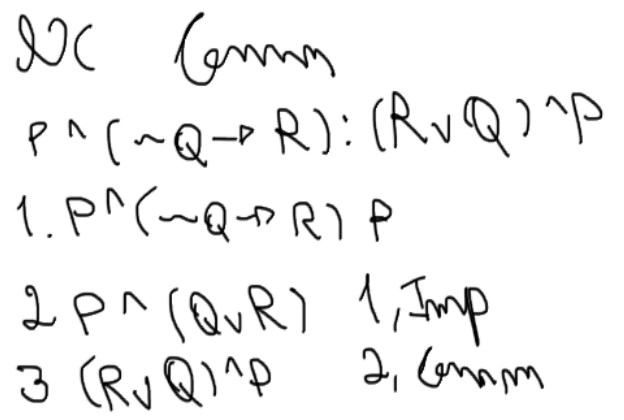 NC Comm
P ^ (~Q → R) : (R ∨ Q) ^ P
1. P ^ (~Q → R) P
2 P ^ (Q ∨ R) 1, Imp
3 (R ∨ Q) ^ P 2, Comm